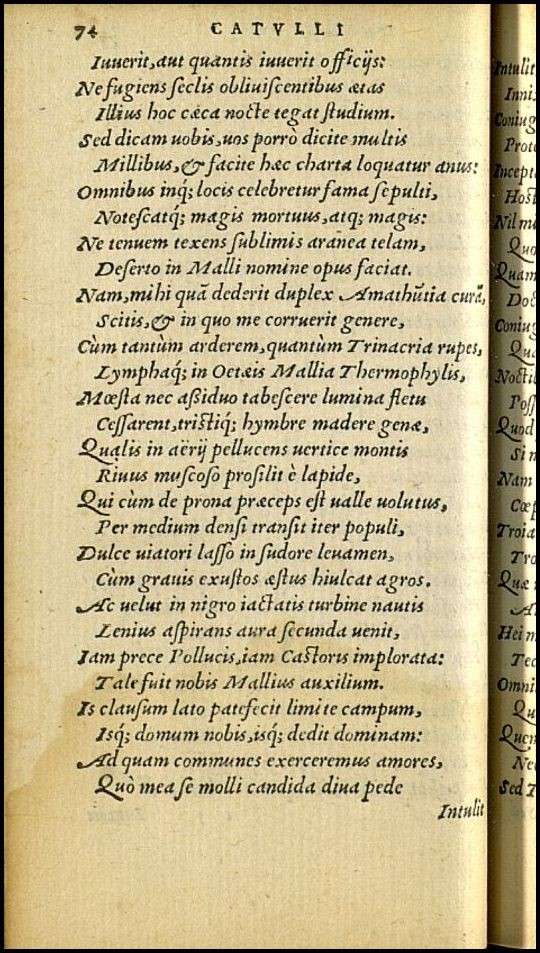 74 CATVLLI
Iuuerit, aut quantis iuuerit officijs:
Ne fugiens seclis obliuiscentibus ætas
Illius hoc cæca nocte tegat studium.
Sed dicam uobis, uos porrò dicite multis
Millibus, & facite hæc charta loquatur anus:
Omnibus inq́; locis celebretur fama sepulti,
Notescatq́; magis mortuus, atq; magis:
Ne tenuem texens sublimis aranea telam,
Deserto in Malli nomine opus faciat.
Nam, mihi quã dederit duplex Amathũtia curã,
Scitis, & in quo me corruerit genere,
Cùm tantùm arderem, quantùm Trinacria rupes,
Lymphaq́; in Oetæis Mallia Thermophylis,
Mœsta nec aßiduo tabescere lumina fletu
Cessarent, tristiq́; hymbre madere genæ,
Qualis in aërij pellucens uertice montis
Riuus muscoso prosilit è lapide,
Qui cùm de prona præceps est ualle uolutus,
Per medium densi transit iter populi,
Dulce uiatori lasso in sudore leuamen,
Cùm grauis exustos æstus hiulcat agros.
Ac uelut in nigro iactatis turbine nautis
Lenius aspirans aura secunda uenit,
Iam prece Pollucis, iam Castoris implorata:
Tale fuit nobis Mallius auxilium.
Is clausum lato patefecit limite campum,
Isq́; domum nobis, isq́; dedit dominam:
Ad quam communes exerceremus amores,
Quò mea se molli candida diua pede
Intulit
Intulit
Inni
Coniug
Prote
Incepta
Host
Nil mi
Quo
Quam
Doct
Coniug
Qua
Noctib
Poss
Quod
Si n
Nam
Cœp
Troia
Tro
Quæ
A
Hei m
Tec
Omni
Qu
Quem
Ne
Sed T